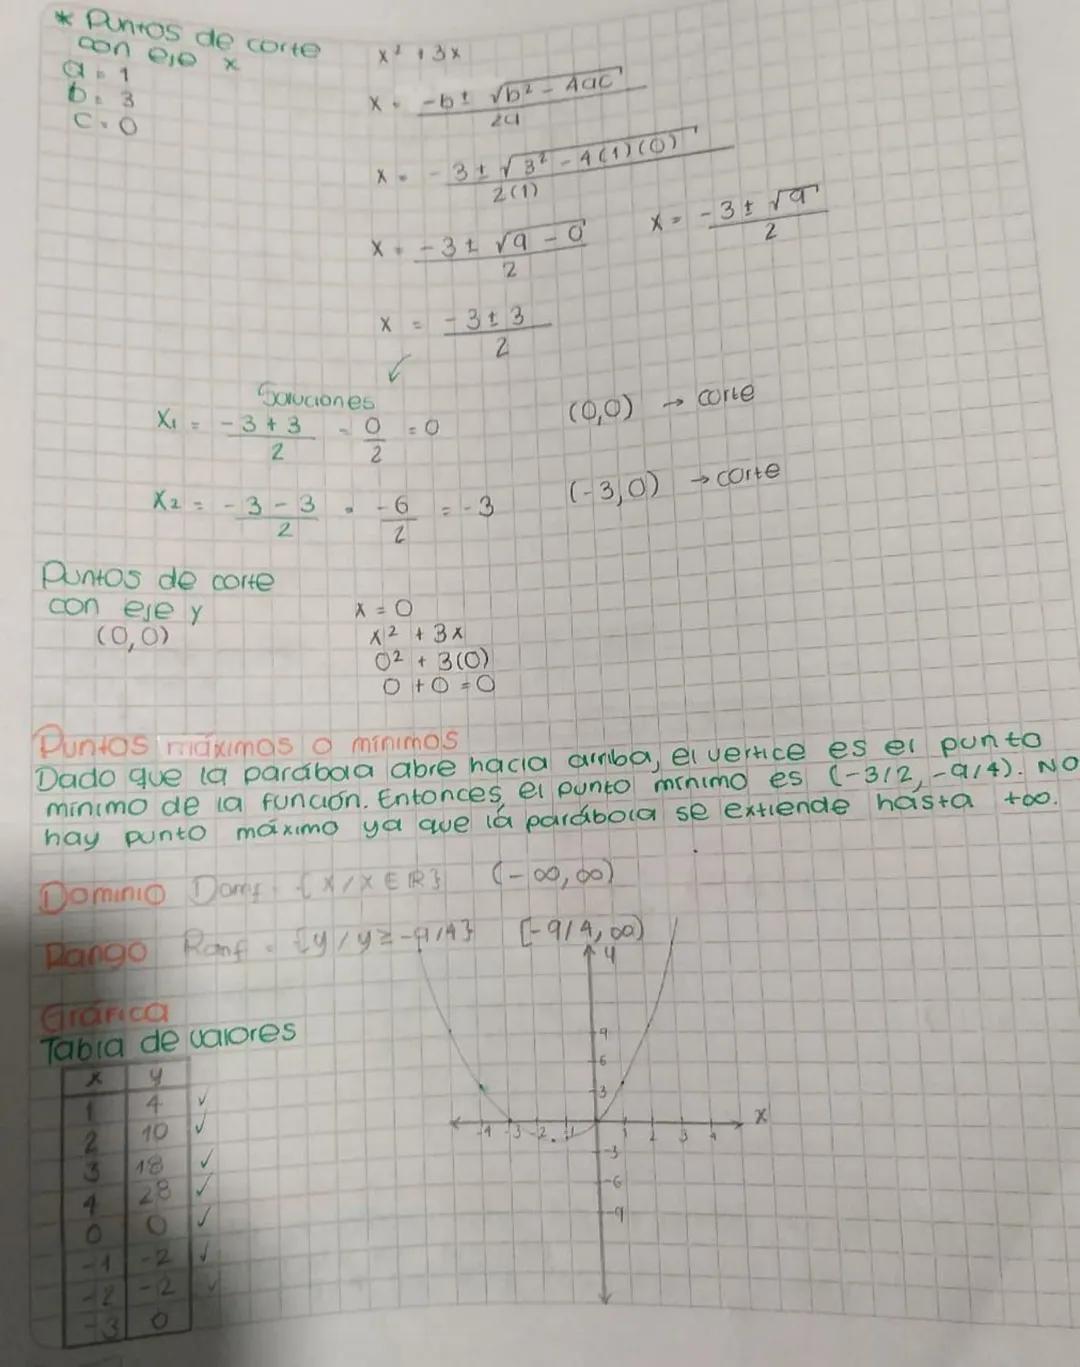 * Puntos de corte
con eje x
a = 1
b = 3
c = 0
x² + 3x
x = -b ± √b² - 4ac / 2a
x = -3 ± √3² - 4(1)(0) / 2(1)
x = -3 ± √9 - 0 / 2
x = -3 ± √9 / 2
x = -3 ± 3 / 2
Soluciones
x₁ = -3 + 3 / 2 = 0 / 2 = 0
(0,0) → corte
x₂ = -3 - 3 / 2 = -6 / 2 = -3
(-3,0) → corte
Puntos de corte
con eje y
(0,0)
x = 0
x² + 3x
0² + 3(0)
0 + 0 = 0
Puntos máximos o mínimos
Dado que la parábola abre hacia arriba, el vertice es el punto
mínimo de la función. Entonces, el punto mínimo es (-3/2, -9/4). No
hay punto máximo ya que la parábola se extiende hasta +∞.
Dominio Domf = {x/x ∈ ℝ} (-∞,∞)
Rango Ranf = {y/y ≥ -9/4} [-9/4, ∞)
Gráfica
Tabla de valores
x y
1 4 ✓
2 10 ✓
3 18 ✓
4 28 ✓
0 0 ✓
-1 -2 ✓
-2 -2 ✓
-3 0
y
9
6
3
-4 -3 -2 -1 1 2 3 4 x
-3
-6
-9